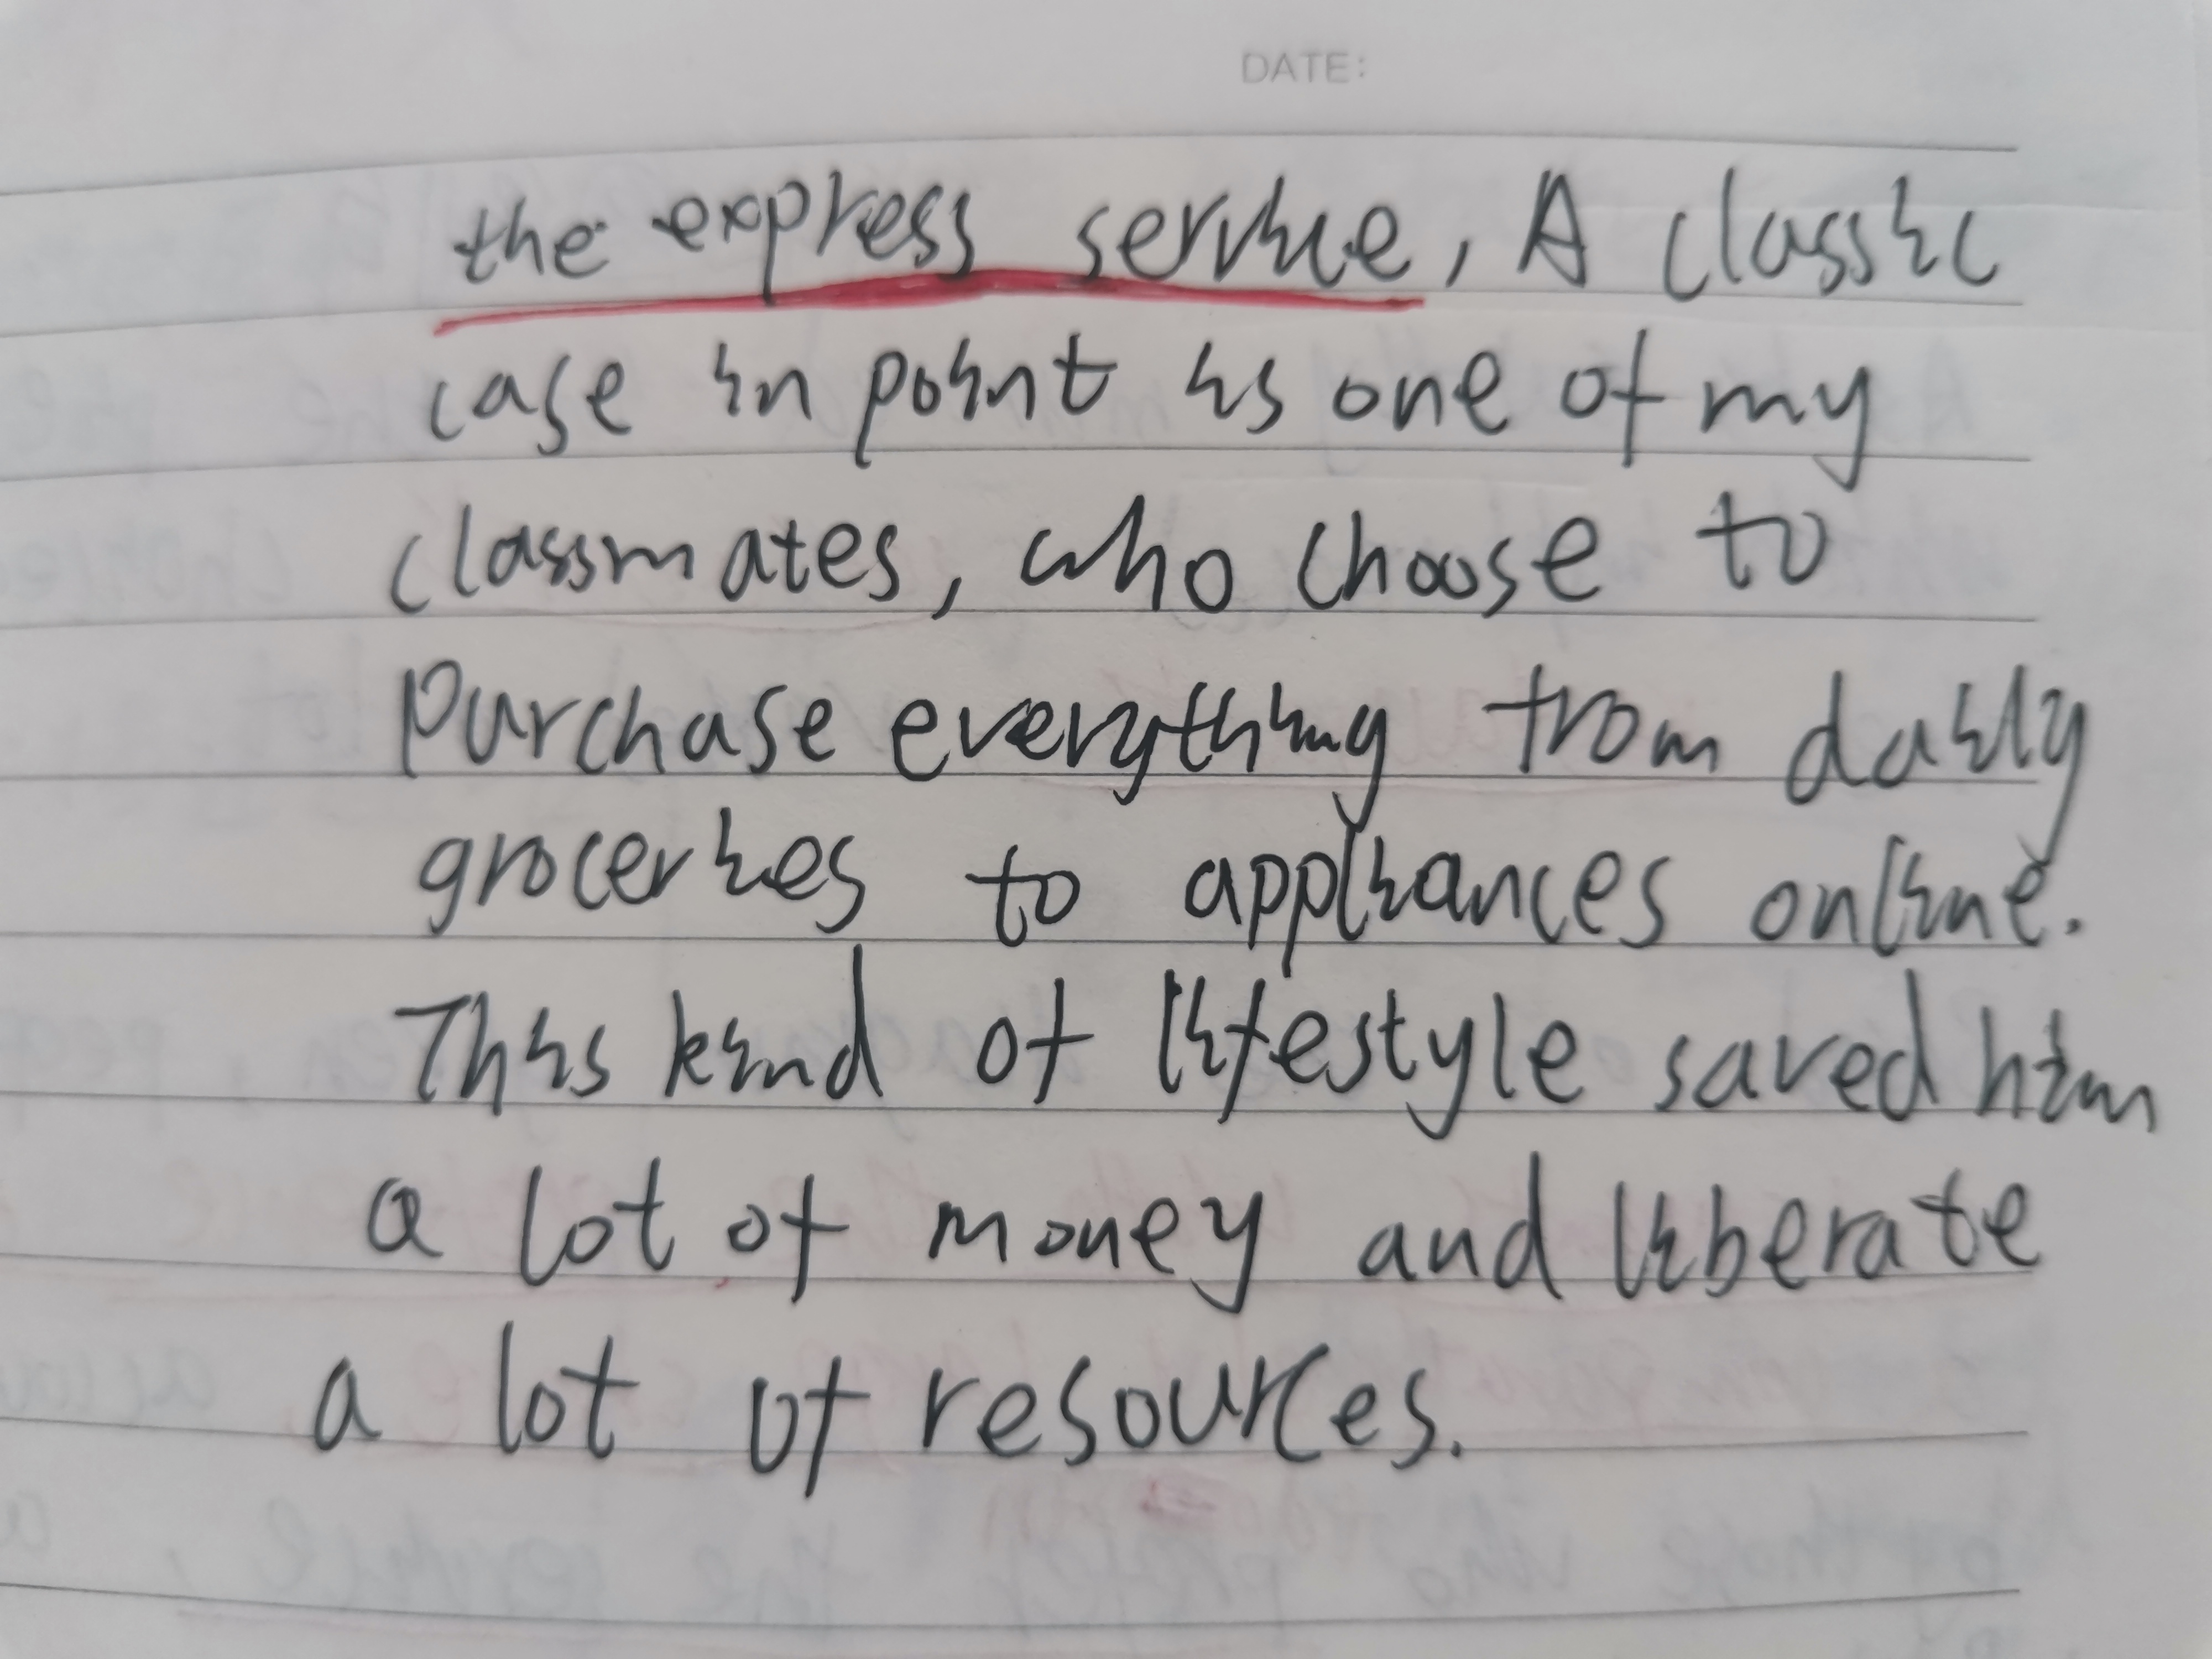 DATE:
the express service, A classic
case in point is one of my
classmates, who choose to
Purchase everything from daily
groceries to appliances online.
This kind of lifestyle saved him
a lot of money and liberate
a lot of resources.